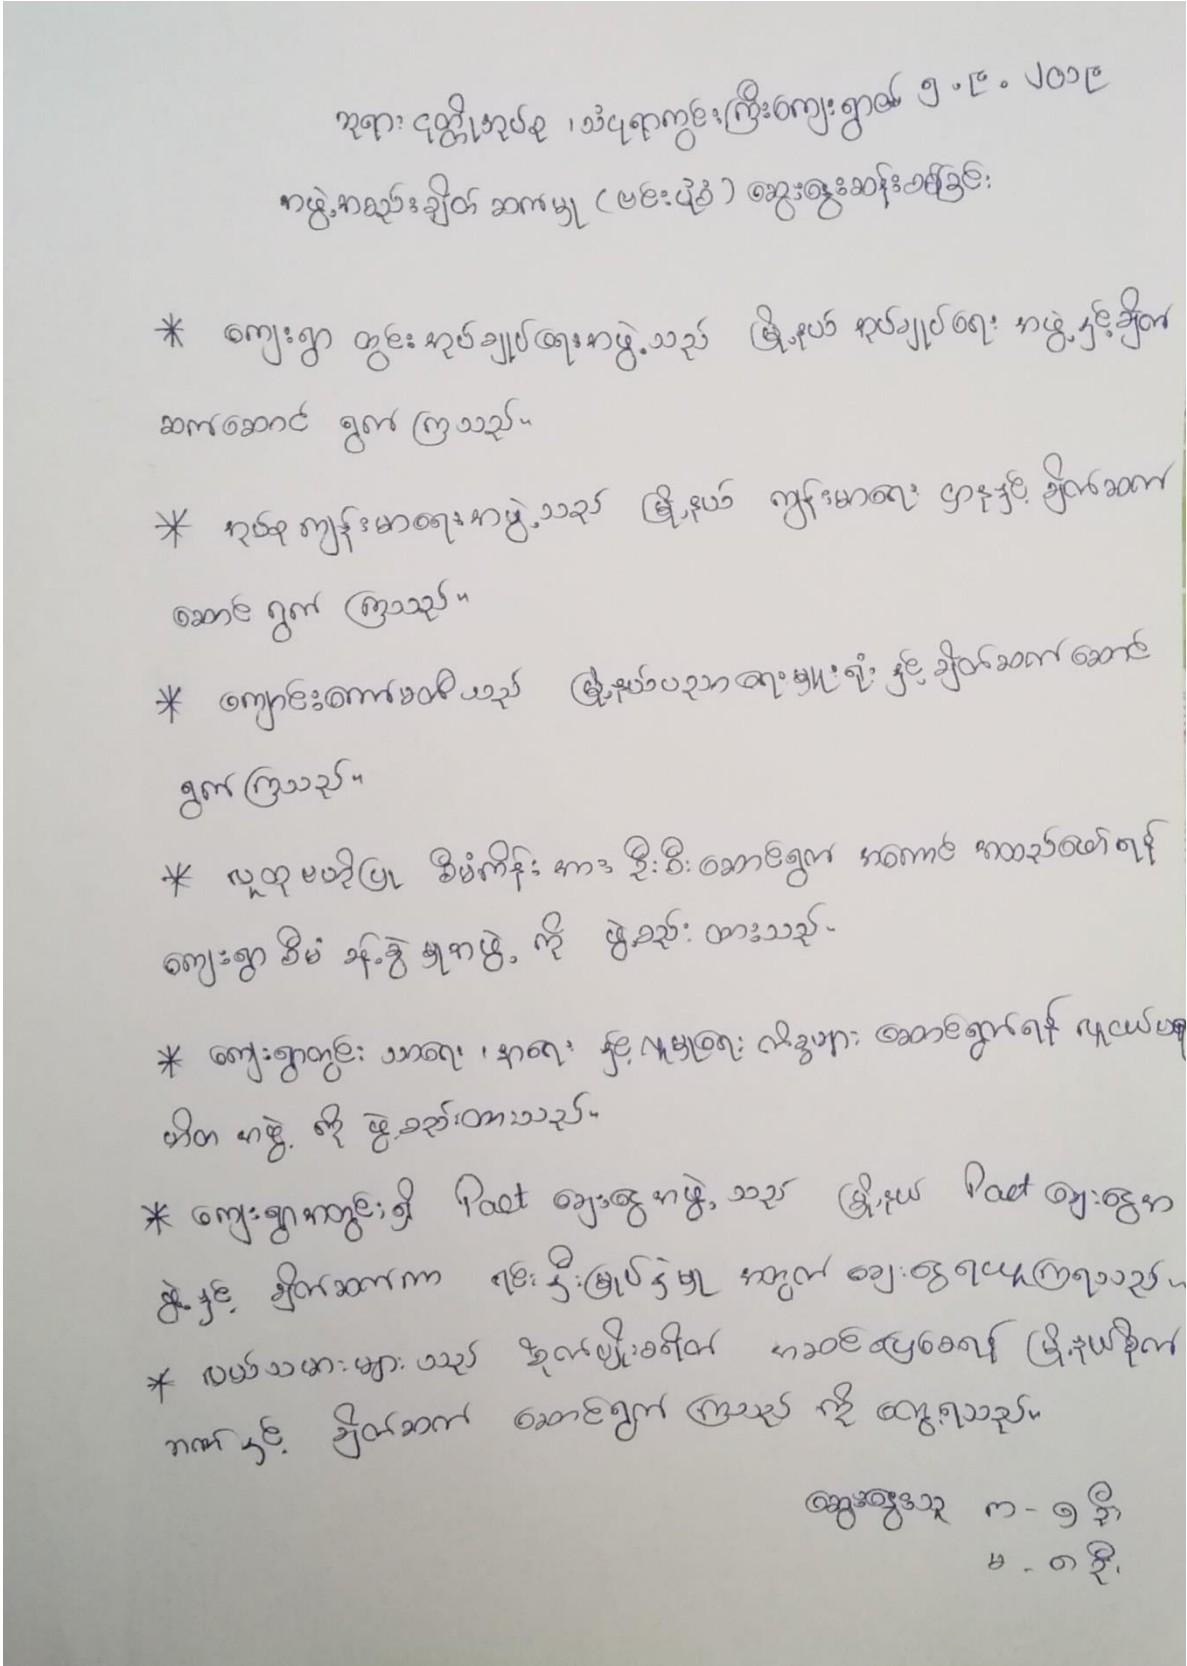 ဘုရားငုတ္တိုအုပ်စု ၊ သံပုရာကွင်းကြီးကျေးရွာ ၅.၉.၂၀၁၉
အဖွဲ့အစည်းချိတ်ဆက်မှု (ဗင်းပုံစံ) ဆွေးနွေးဆန်းစစ်ခြင်း
* ကျေးရွာ တွင်း အုပ်ချုပ်ရေးအဖွဲ့သည် မြို့နယ် အုပ်ချုပ်ရေး အဖွဲ့နှင့်ချိတ်
ဆက်ဆောင် ရွက် ကြသည်။
* အုပ်စုကျန်းမာရေးအဖွဲ့သည် မြို့နယ် ကျန်းမာရေး ဌာနနှင့် ချိတ်ဆက်
ဆောင် ရွက် ကြသည်။
* ကျောင်းကော်မတီသည် မြို့နယ်ပညာရေးမှူးရုံး နှင့် ချိတ်ဆက်ဆောင်
ရွက်ကြသည်။
* လူထုဗဟိုပြု စီမံကိန်း အား ဦးစီးဆောင်ရွက် အကောင် အထည်ဖော်ရန်
ကျေးရွာ စီမံ ခန့်ခွဲ မှုအဖွဲ့ ကို ဖွဲ့စည်း ထားသည်။
* ကျေးရွာတွင်း သာရေး ၊ နာရေး နှင့်လူမှုရေး ကိစ္စများ ဆောင်ရွက်ရန် လူငယ်ပရ
ဟိတ အဖွဲ့ ကို ဖွဲ့စည်းထားသည်။
* ကျေးရွာအတွင်းရှိ Pact ချေးငွေအဖွဲ့သည် မြို့နယ် Pact ချေးငွေအ
ဖွဲ့နှင့် ချိတ်ဆက်ကာ ရင်းနှီးမြှုပ်နှံမှု အတွက် ချေးငွေရယူကြရသည်။
* လယ်သမားများသည် စိုက်ပျိုးစရိတ် အဆင်ပြေစေရန် မြို့နယ်စိုက်
ဘဏ်နှင့် ချိတ်ဆက် ဆောင်ရွက် ကြသည် ကို တွေ့ရသည်။
ဆွေးနွေးသူ က - ၅ ဦး
မ - ၈ ဦး